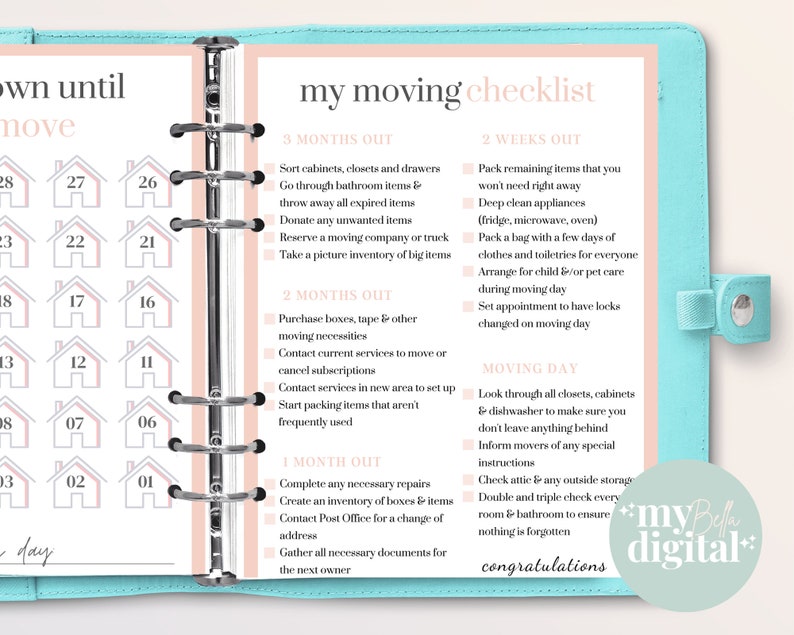 own until
move
28 27 26
23 22 21
18 17 16
13 12 11
08 07 06
03 02 01
day
my moving checklist
3 MONTHS OUT
Sort cabinets, closets and drawers
Go through bathroom items &
throw away all expired items
Donate any unwanted items
Reserve a moving company or truck
Take a picture inventory of big items
2 MONTHS OUT
Purchase boxes, tape & other
moving necessities
Contact current services to move or
cancel subscriptions
Contact services in new area to set up
Start packing items that aren't
frequently used
1 MONTH OUT
Complete any necessary repairs
Create an inventory of boxes & items
Contact Post Office for a change of
address
Gather all necessary documents for
the next owner
2 WEEKS OUT
Pack remaining items that you
won't need right away
Deep clean appliances
(fridge, microwave, oven)
Pack a bag with a few days of
clothes and toiletries for everyone
Arrange for child &/or pet care
during moving day
Set appointment to have locks
changed on moving day
MOVING DAY
Look through all closets, cabinets
& dishwasher to make sure you
don't leave anything behind
Inform movers of any special
instructions
Check attic & any outside storage
Double and triple check every
room & bathroom to ensure
nothing is forgotten
congratulations
my Bella
digital